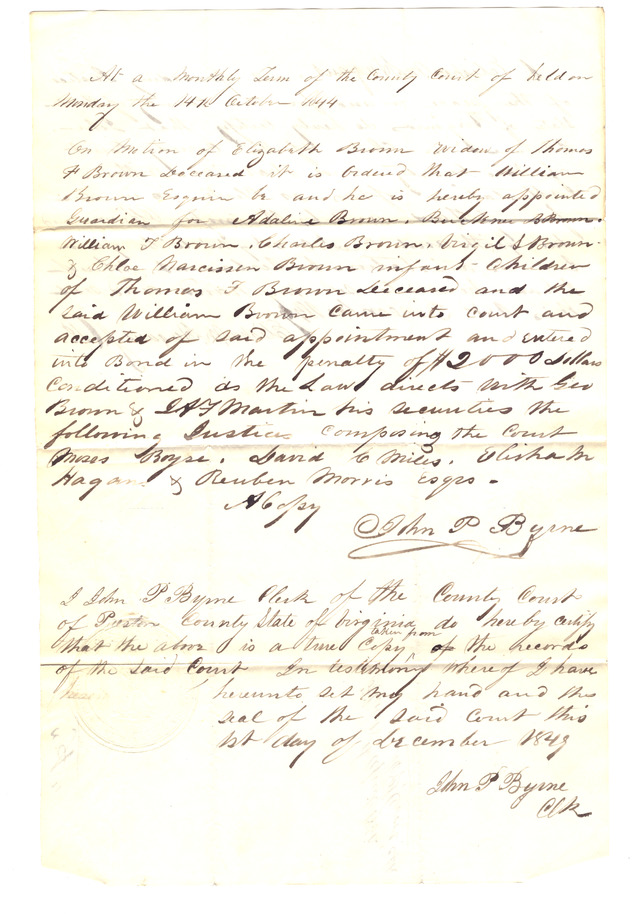 At a Monthly Term of the County Court of held on
Monday the 14th October 1844
On Motion of Elizabeth Brown widow of Thomas
F Brown Deceased it is ordered that William
Brown Esquire be and he is hereby appointed
Guardian for Adaline Brown, Brown.
William F Brown, Charles Brown, Virgil S Brown
& Chloe Narcissen Brown infant Children
of Thomas F Brown Deceased and the
said William Brown came into court and
accepted of said appointment and entered
into Bond in the penalty of $2000 Dollars
Conditioned as the Law directs with Geo
Brown & Martin his securities the
following Justices composing the Court
Moses Royse, David C Miles, Elisha M
Hagans & Reuben Morris Esqrs -
A Copy
John P Byrne
I John P Byrne Clerk of the County Court
of Preston County State of Virginia do hereby certify
that the above is a true Copy taken from of the records
of the said Court In testimony where of I have
hereunto set my hand and the
seal of the said Court this
1st day of December 1849
John P Byrne
Clk